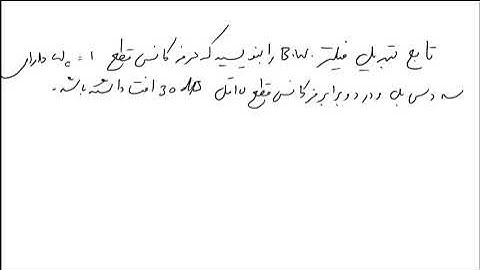 تابع تبدیل فیلتر B.W. را بنویسید که در فرکانس قطع ω_c = 1 دارای
سه دسی بل و در دو برابر فرکانس قطع حداقل 30 dB افت داشته باشد.